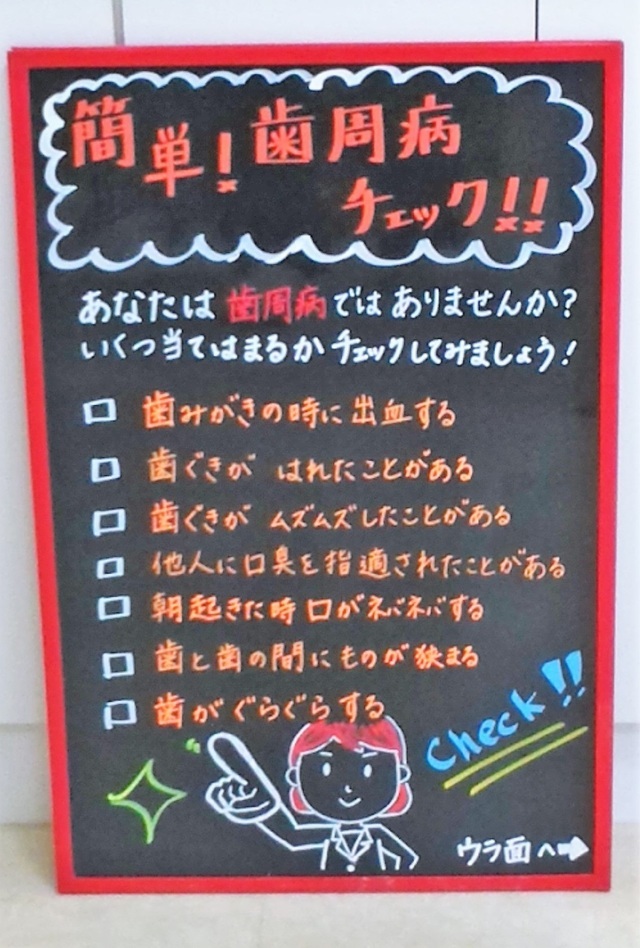 簡単!歯周病
チェック!!
あなたは歯周病ではありませんか?
いくつ当てはまるかチェックしてみましょう!
□ 歯みがきの時に出血する
□ 歯ぐきが はれたことがある
□ 歯ぐきが ムズムズしたことがある
□ 他人に口臭を指適されたことがある
□ 朝起きた時口がネバネバする
□ 歯と歯の間にものが狭まる
□ 歯がぐらぐらする
Check!!
ウラ面へ➡